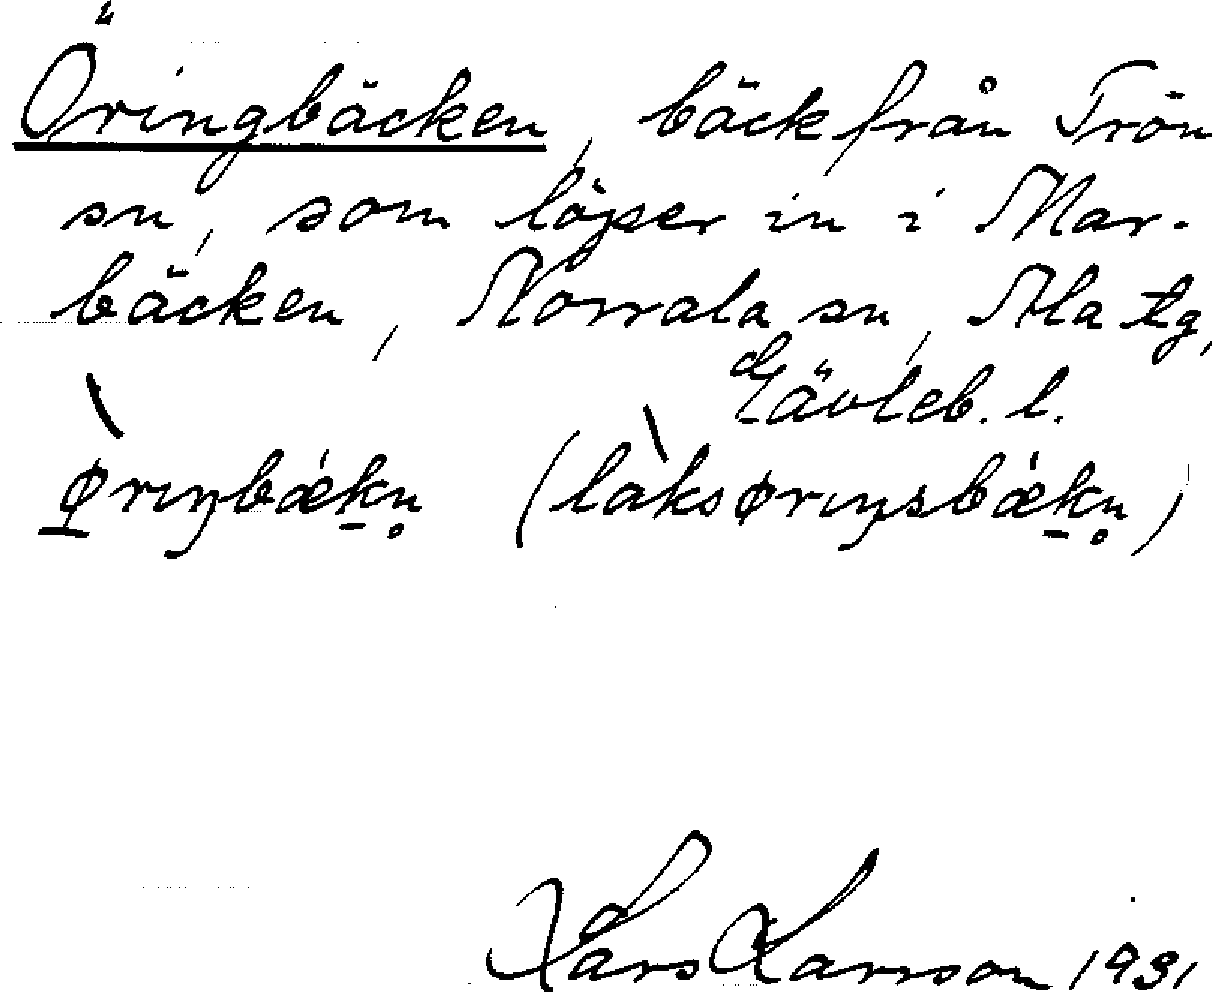 Öringbäcken, bäck från Trön
sn, som löper in i Mar-
bäcken, Norrala sn, Ala tg,
Gävleb. l.
øriŋbækn̥ (laksøriŋsbækn̥)
Lars Larsson 1931